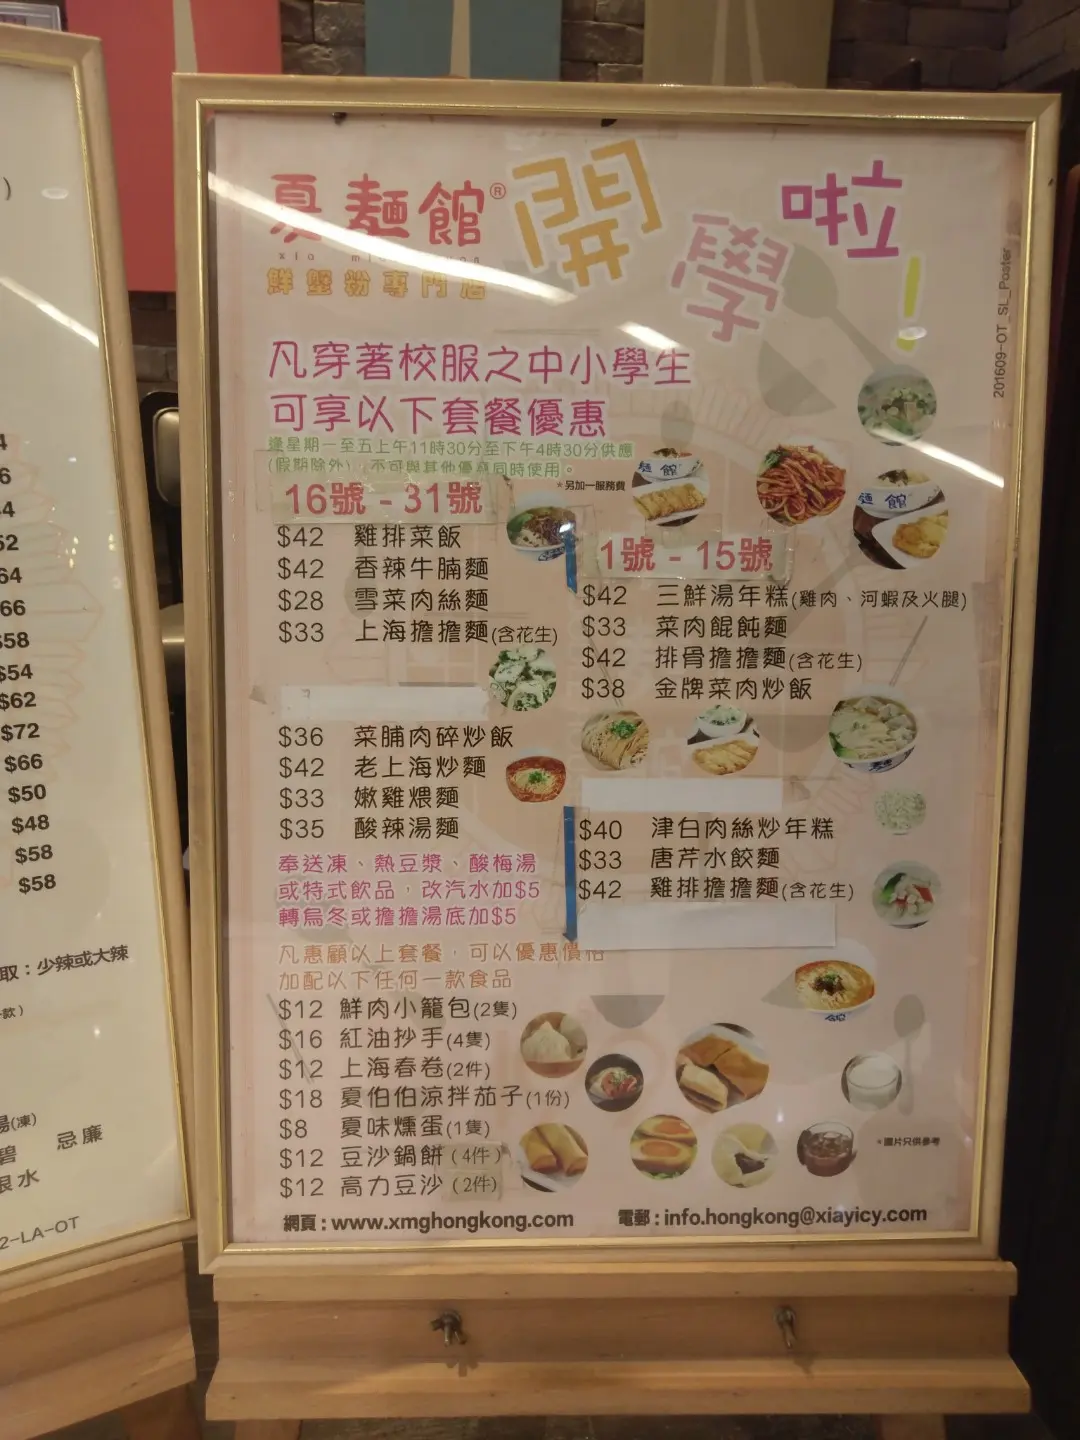 夏麵館®
鮮蟹粉專門店
開學啦!
201609-OT_SL_Poster
凡穿著校服之中小學生
可享以下套餐優惠
逢星期一至五上午11時30分至下午4時30分供應
(假期除外)，不可與其他優惠同時使用。
*另加一服務費
16號 - 31號
$42 雞排菜飯
$42 香辣牛腩麵
$28 雪菜肉絲麵
$33 上海擔擔麵(含花生)
$36 菜脯肉碎炒飯
$42 老上海炒麵
$33 嫩雞煨麵
$35 酸辣湯麵
1號 - 15號
$42 三鮮湯年糕(雞肉、河蝦及火腿)
$33 菜肉餛飩麵
$42 排骨擔擔麵(含花生)
$38 金牌菜肉炒飯
$40 津白肉絲炒年糕
$33 唐芹水餃麵
$42 雞排擔擔麵(含花生)
奉送凍、熱豆漿、酸梅湯
或特式飲品，改汽水加$5
轉烏冬或擔擔湯底加$5
凡惠顧以上套餐，可以優惠價格
加配以下任何一款食品
$12 鮮肉小籠包(2隻)
$16 紅油抄手(4隻)
$12 上海春卷(2件)
$18 夏伯伯涼拌茄子(1份)
$8 夏味燻蛋(1隻)
$12 豆沙鍋餅(4件)
$12 高力豆沙(2件)
*圖片只供參考
網頁:www.xmghongkong.com
電郵:info.hongkong@xiayicy.com
)
52
64
66
$58
$54
$62
$72
$66
$50
$48
$58
$58
取：少辣或大辣
款)
湯(凍)
碧 忌廉
水
2-LA-OT